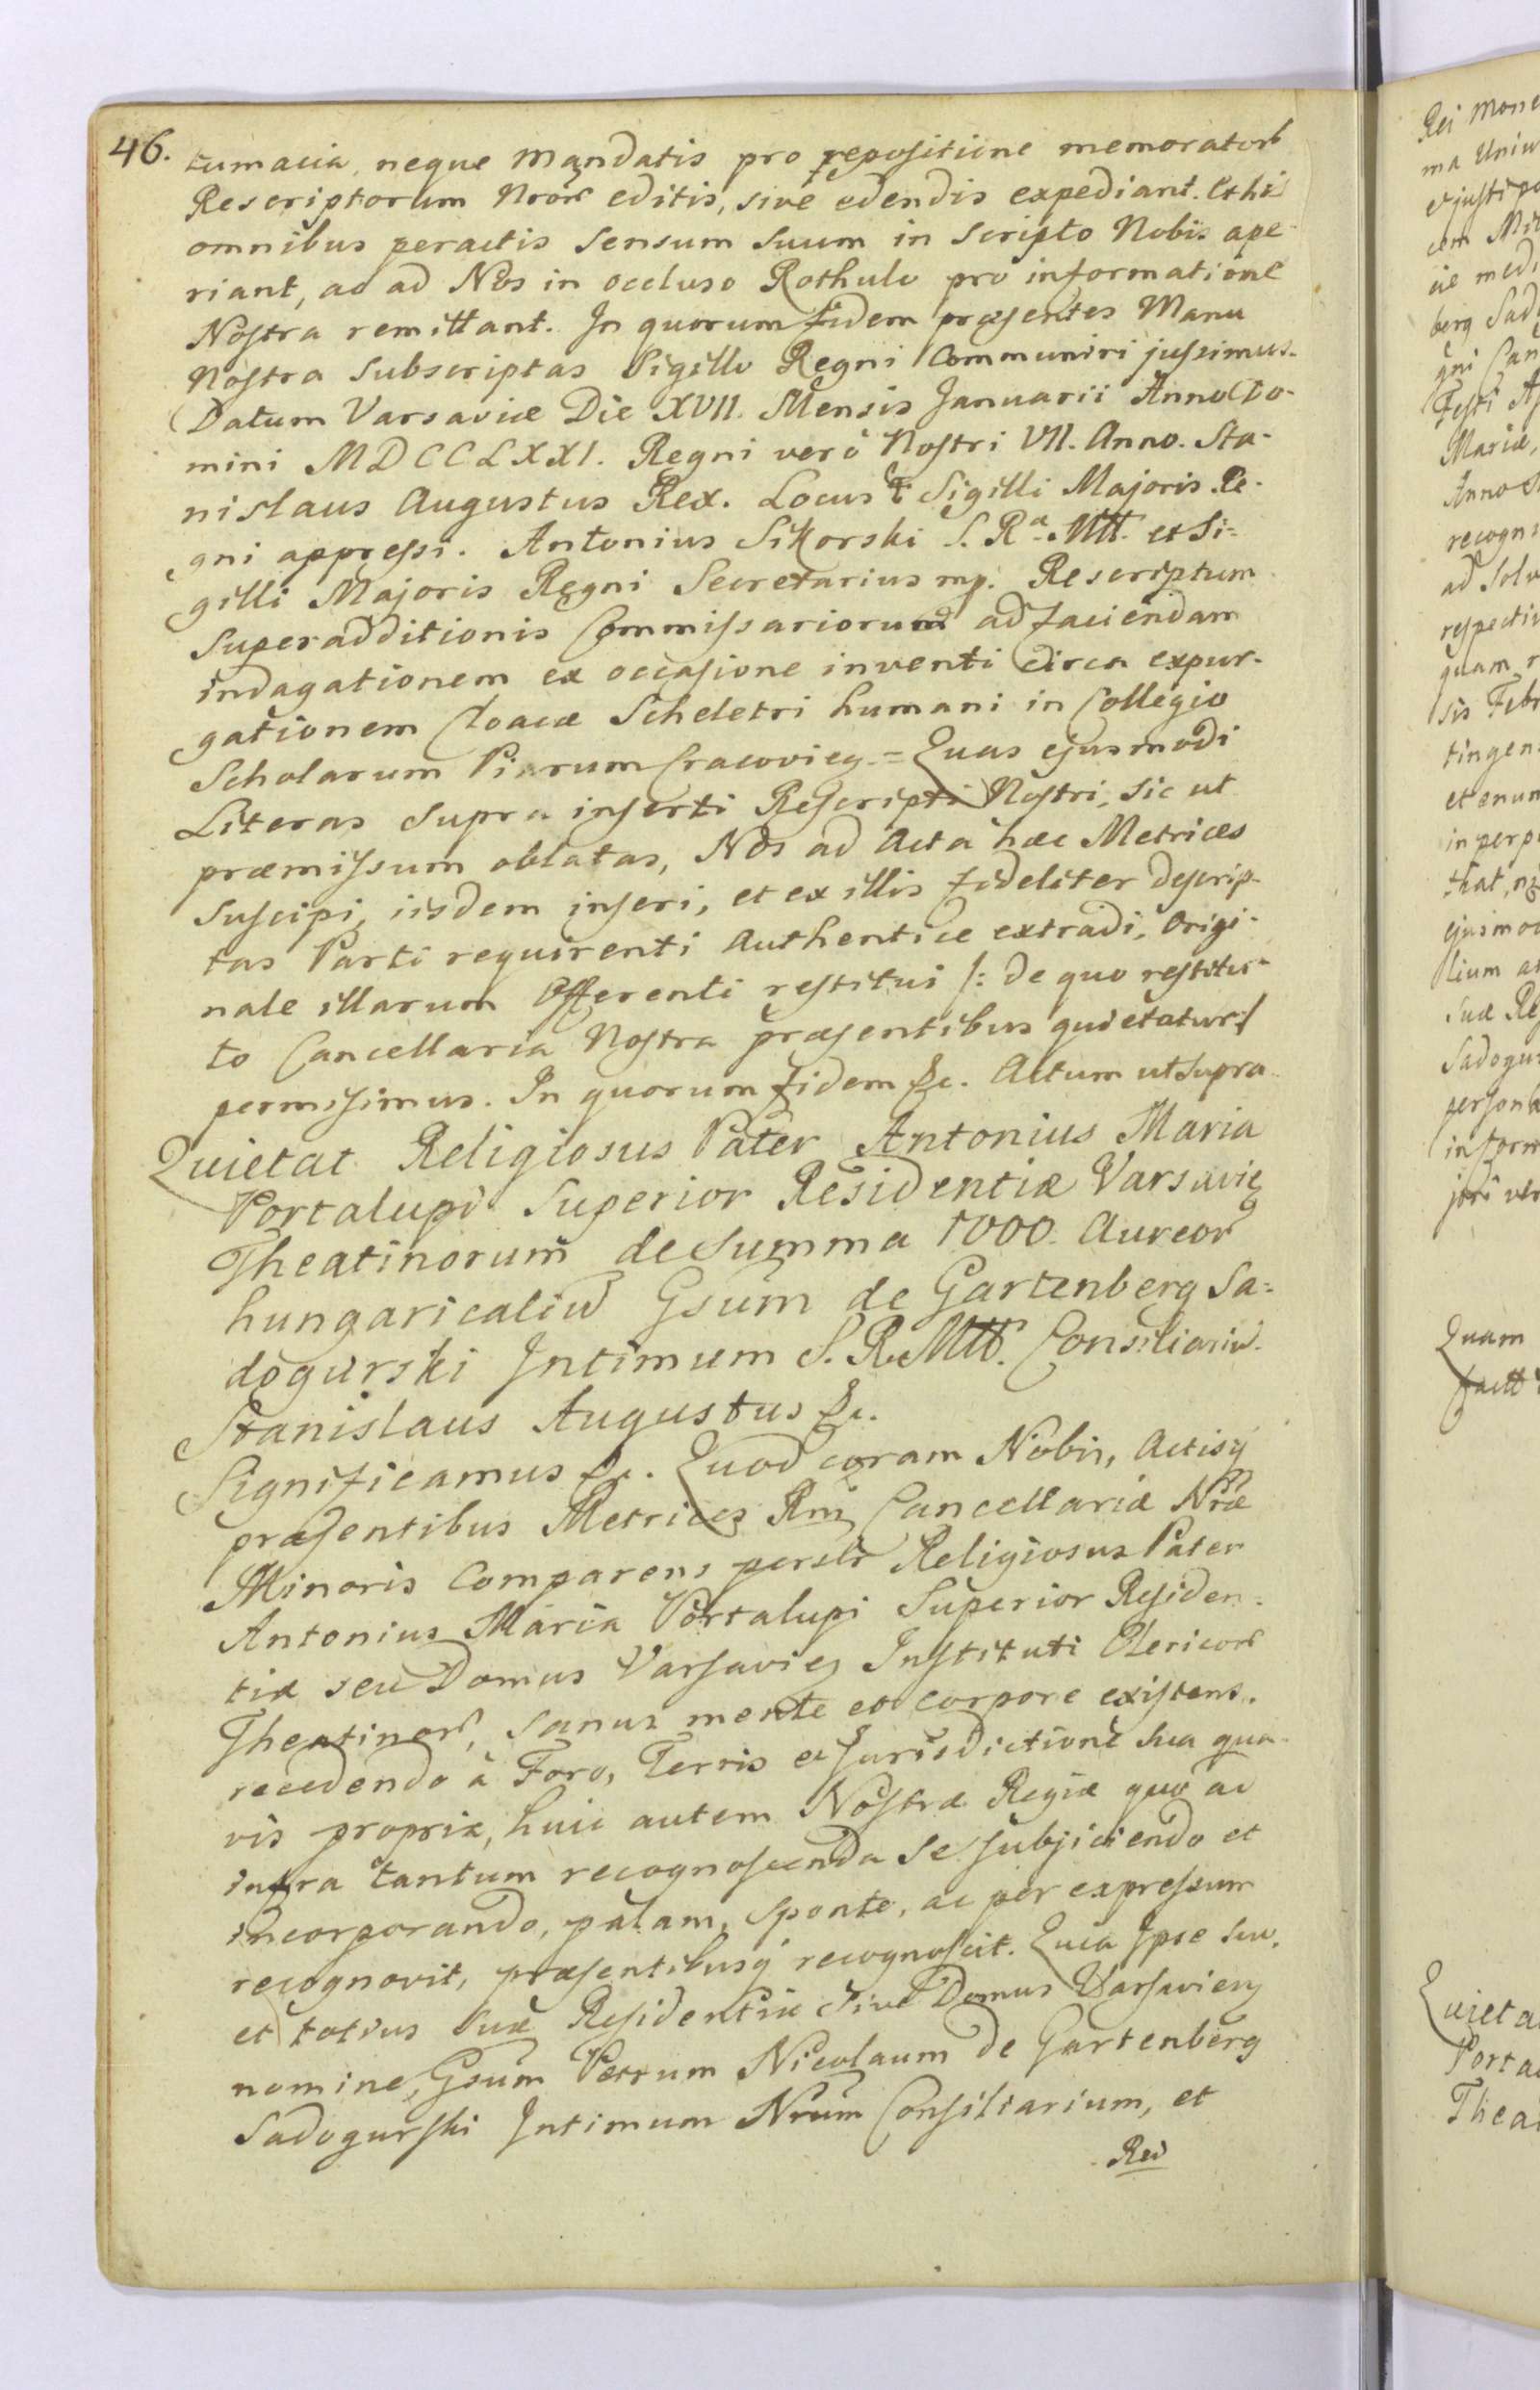 46.
tumacia, neque Mandatis pro repositione memorator
Rescriptorum Nror editis, sive edendis expediant. et his
omnibus peractis Sensum Suum in Scripto Nobis ape-
riant, ac ad Nos in occluso Rothulo pro informatione
Nostra remittant. In quorum fidem præsentes Manu
Nostra Subscriptas Sigillo Regni Communiri jussimus.
Datum Varsaviæ Die XVII. Mensis Januarii Anno Do-
mini MDCCLXXI. Regni verò Nostri VII. Anno. Sta-
nislaus Augustus Rex. Locus Sigilli Majoris Re-
gni appressi. Antonius Sikorski S. Rᵃ. Mtt. et Si=
gilli Majoris Regni Secretarius mp. Rescriptum
Superadditionis Commissariorum ad faciendam
indagationem ex occasione inventi circa expur-
gationem Cloacæ Scheletri humani in Collegio
Scholarum Piarum Cracovien. = Quas ejusmodi
Literas Supra inserti Rescripti Nostri, sic ut
præmissum oblatas, Nos ad Acta hæc Metrices
Suscipi, iisdem inseri, et ex illis fideliter descrip-
tas Parti requirenti Authentice extradi, Origi-
nale illarum Offerenti restitui /: de quo restitu-
to Cancellaria Nostra præsentibus quietatur :/
permisimus. In quorum fidem &c. Actum ut Supra.
Quietat Religiosus Pater Antonius Maria
Portalupi Superior Residentiæ Varsavien
Theatinorum de Summa 1000. Aureor
hungaricaliu Gsum de Gartenberg Sa=
dogurski Intimum S. R. Mtt. Consiliariu.
Stanislaus Augustus &c.
Significamus &c. Quod coram Nobis, Actisq
præsentibus Metrices Rni Cancellariæ Nræ
Minoris Comparens perslr Religiosus Pater
Antonius Maria Portalupi Superior Residen-
tiæ seu Domus Varsavien Instituti Clericor
Theatinor, Sanus mente et corpore existens.
recedendo à Foro, Terris et Jurisdictione Sua qua-
vis propria, huic autem Nostræ Regiæ quo ad
infra tantum recognoscenda Se Subjiciendo et
incorporando, palam, Sponte, ac per expressum
recognovit, præsentibusq recognoscit. Quia Ipse Suo,
et totius Suæ Residentiæ Sive Domus Varsavien
nomine, Gsum Petrum Nicolaum de Gartenberg
Sadogurski Intimum Nrum Consiliarium, et
Rei
Rei Mone
ma Univ
cem
berg Sad
gni Can
Festi
Mariæ,
Anno
recogn
ad Solv
respectiv
quam
sis Febr
tingen
et enum
in perp
ejusmod
lium
Suæ Re
Sadogur
person
inform
Quam
Quieta
Porta
Thea